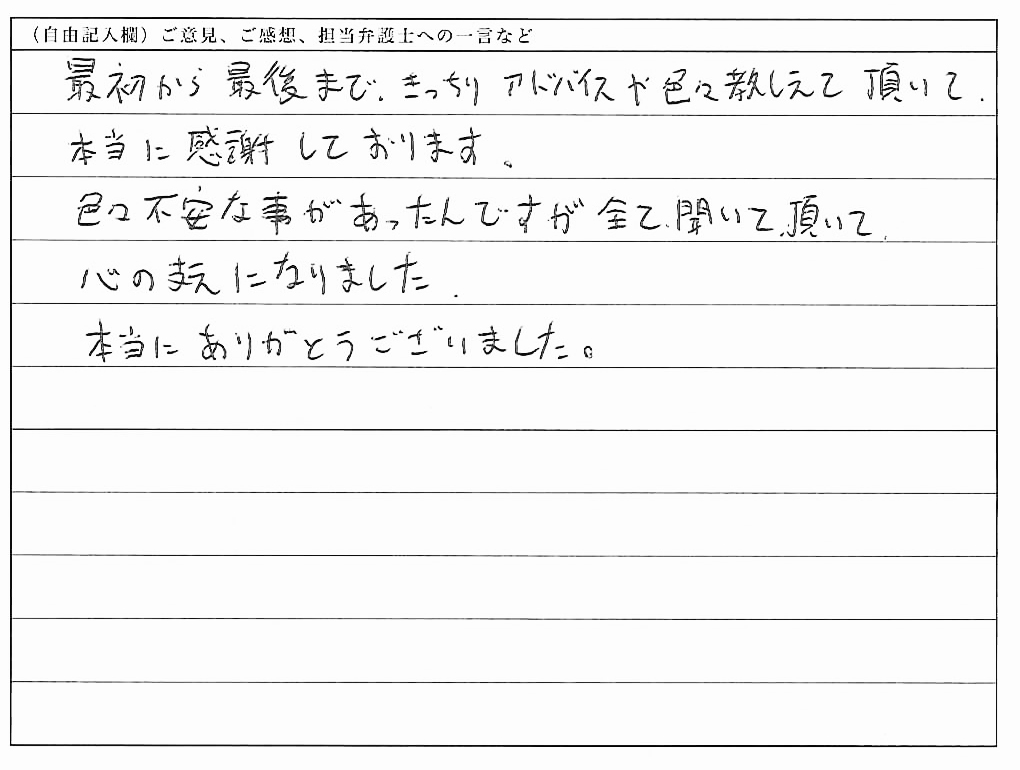 （自由記入欄）ご意見、ご感想、担当弁護士への一言など
最初から最後まで、きっちりアドバイスや色々教しえて頂いて、
本当に感謝しております。
色々不安な事があったんですが全て、聞いて、頂いて、
心の支えになりました、
本当にありがとうございました。